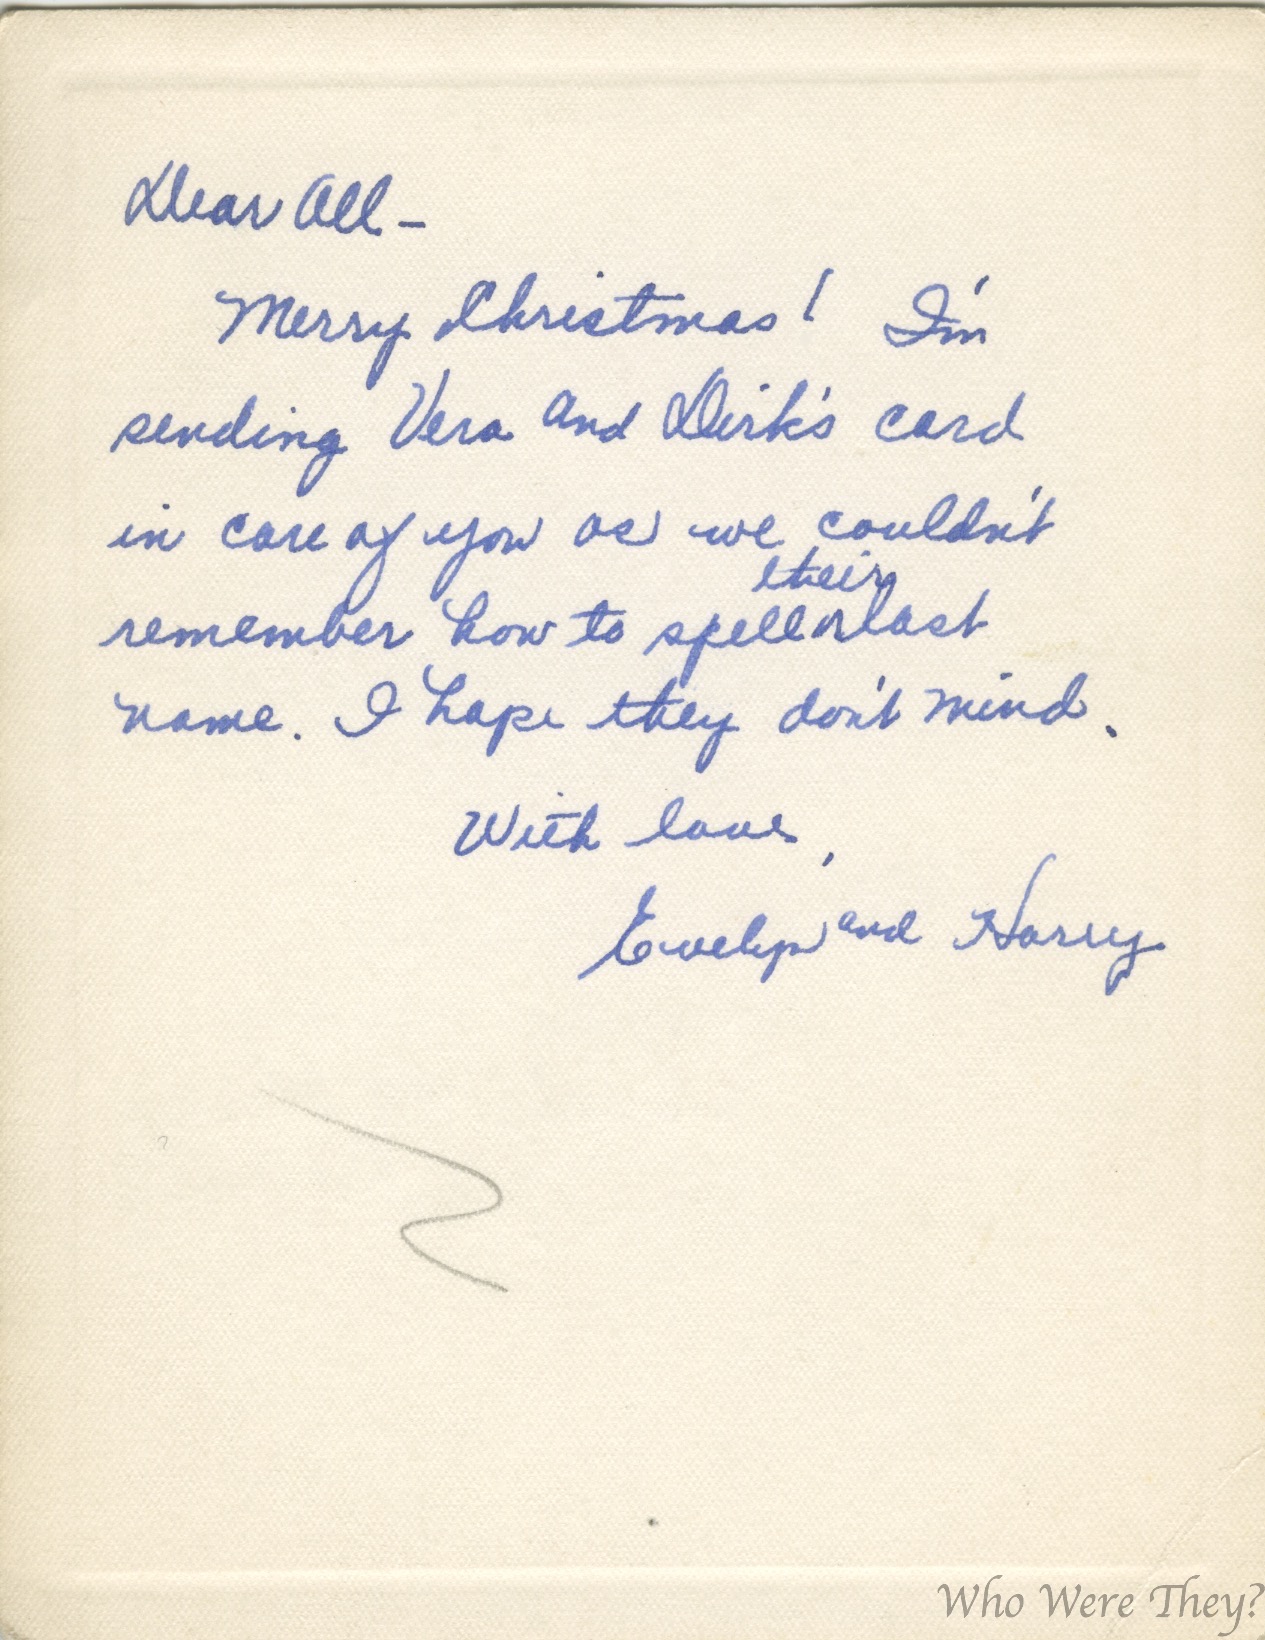 Dear All –
Merry Christmas! I'm
sending Vera and Dirk's card
in care of you as we couldn't
their
remember how to spell last
name. I hope they don't mind.
With love,
Evelyn and Harry
Who Were They?